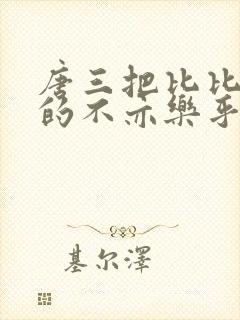 唐三把比比
的不亦樂乎
基尔澤